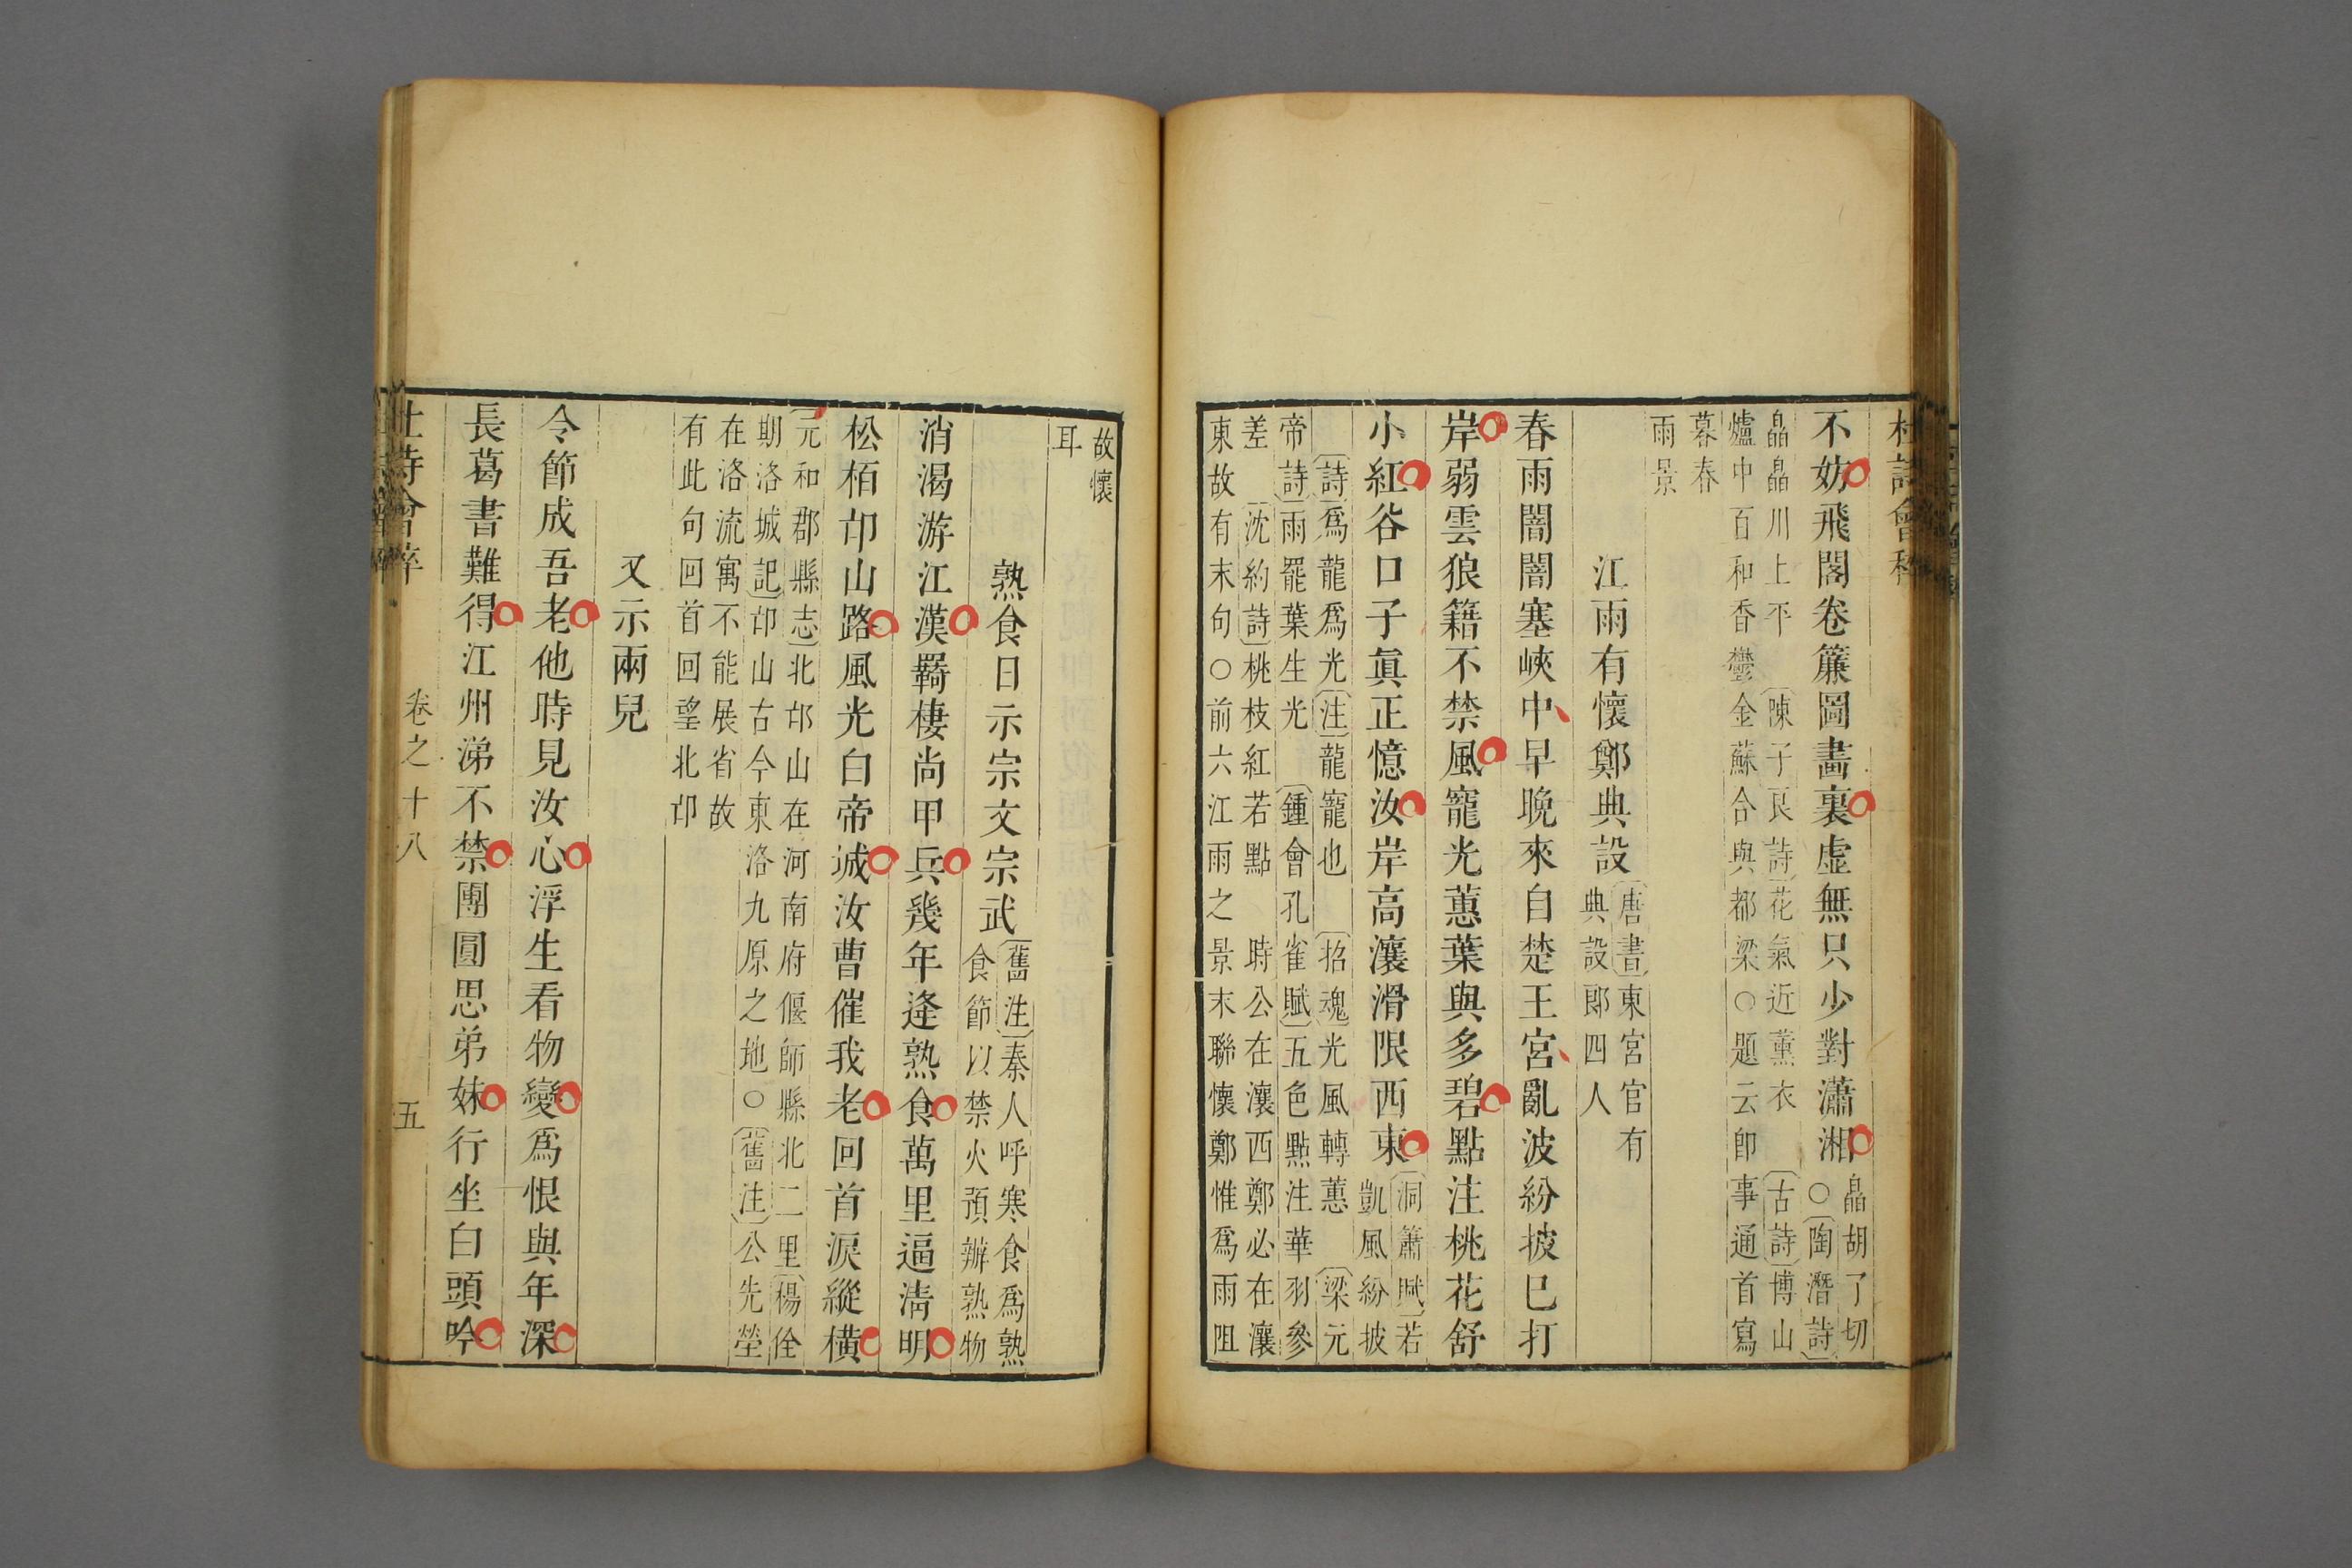 杜詩會稡
不妨飛閣卷簾圖畵裏虛無只少對瀟湘
皛胡了切
○陶潛詩
皛皛川上平 陳子良詩花氣近薰衣 古詩博山
爐中百和香鬱金蘇合與都梁○題云卽事通首寫
暮春
雨景
江雨有懷鄭典設
唐書東宮官有
典設郎四人
春雨闇闇塞峽中早晚來自楚王宮亂波紛披已打
岸弱雲狼籍不禁風寵光蕙葉與多碧點注桃花舒
小紅谷口子眞正憶汝岸高瀼滑限西東
洞簫賦若
凱風紛披
詩爲龍爲光注龍寵也 招魂光風轉蕙 梁元
帝詩雨罷葉生光 鍾會孔雀賦五色點注華羽參
差 沈約詩桃枝紅若點 時公在瀼西鄭必在瀼
東故有末句○前六江雨之景末聯懷鄭惟爲雨阻
故懷
耳
熟食日示宗文宗武
舊注秦人呼寒食爲熟
食節以禁火預辦熟物
消渴游江漢羇棲尚甲兵幾年逢熟食萬里逼淸明
松栢邙山路風光白帝城汝曹催我老回首淚縱橫
元和郡縣志北邙山在河南府偃師縣北二里楊佺
期洛城記邙山古今東洛九原之地○舊注公先塋
在洛流寓不能展省故
有此句回首回望北邙
又示兩兒
令節成吾老他時見汝心浮生看物變爲恨與年深
長葛書難得江州涕不禁團圓思弟妹行坐白頭吟
杜詩會稡
卷之十八
五